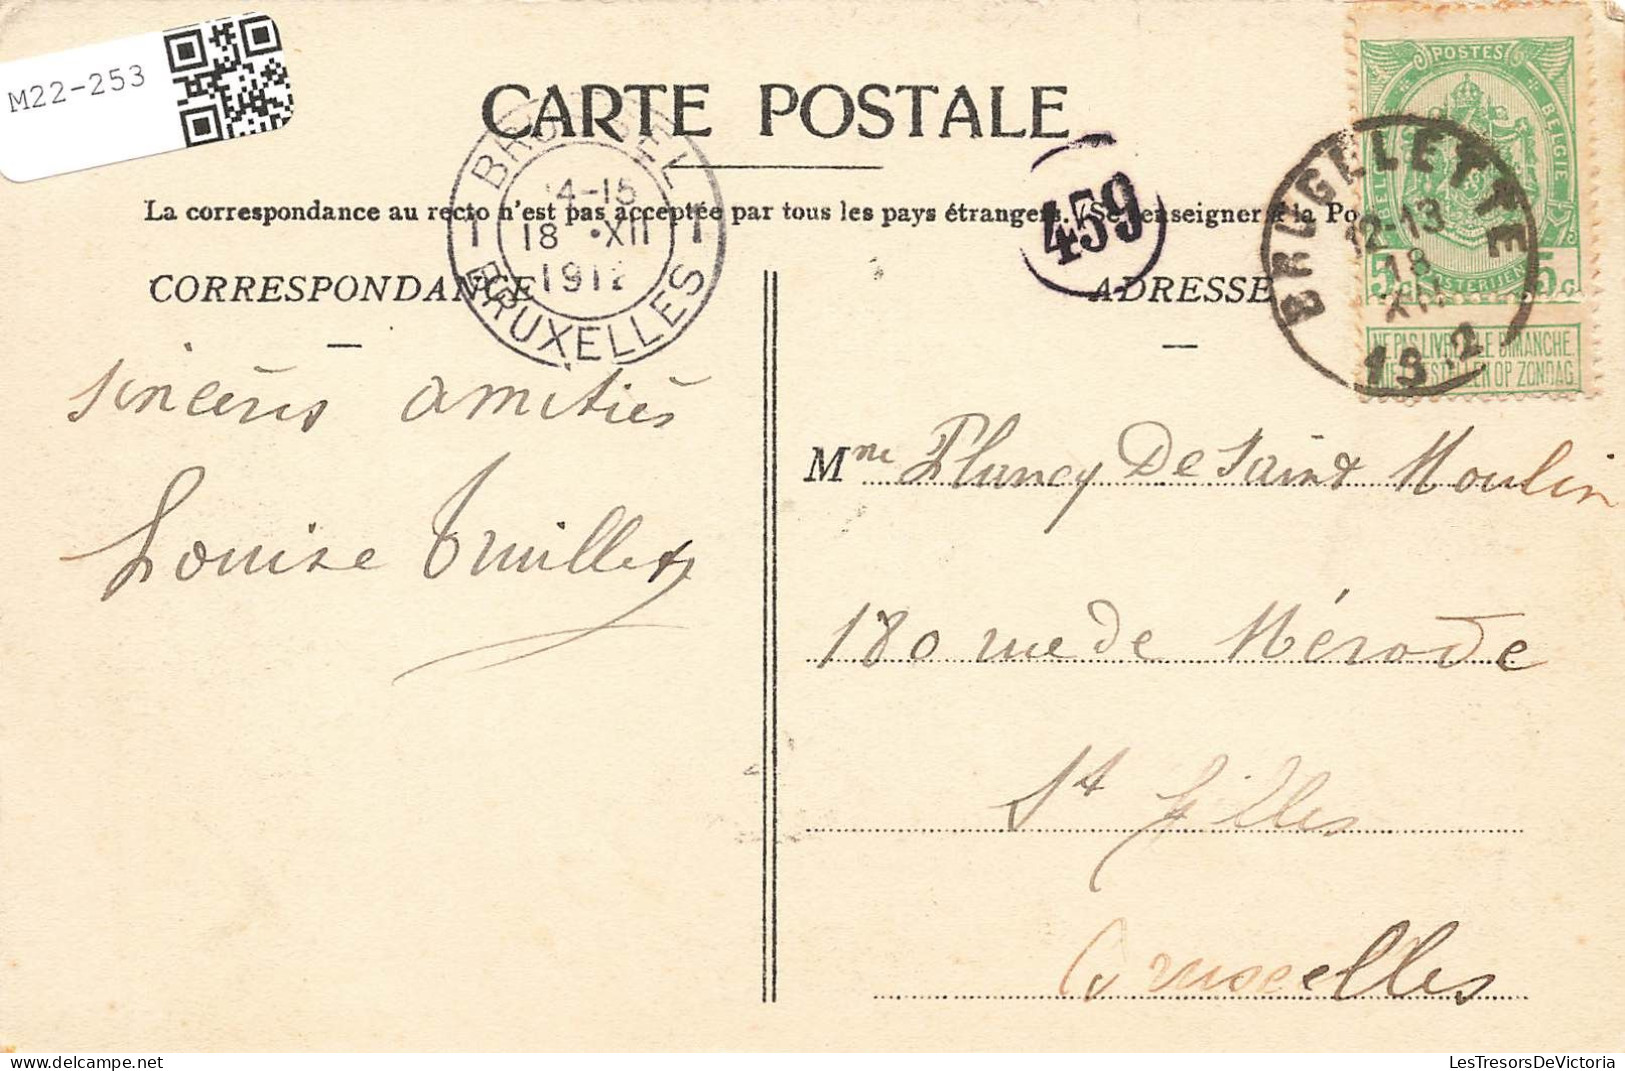 M22-253
CARTE POSTALE
La correspondance au recto n'est pas acceptée par tous les pays étrangers. (Se renseigner à la Po
BRUSSEL
14-15
1 18 XII 1
1912
BRUXELLES
459
BRUGELETTE
12-13
18
XII
1912
POSTES
BELGIE
POSTERIJEN
5 C. 5 C.
NE PAS LIVRER LE DIMANCHE
NIET BESTELLEN OP ZONDAG
CORRESPONDANCE
ADRESSE
sincères amitiés
Louise
Mme De Saint Moulin
180 rue de Mérode
St Gilles
Bruxelles
LesTresorsDeVictoria
www.delcampe.net